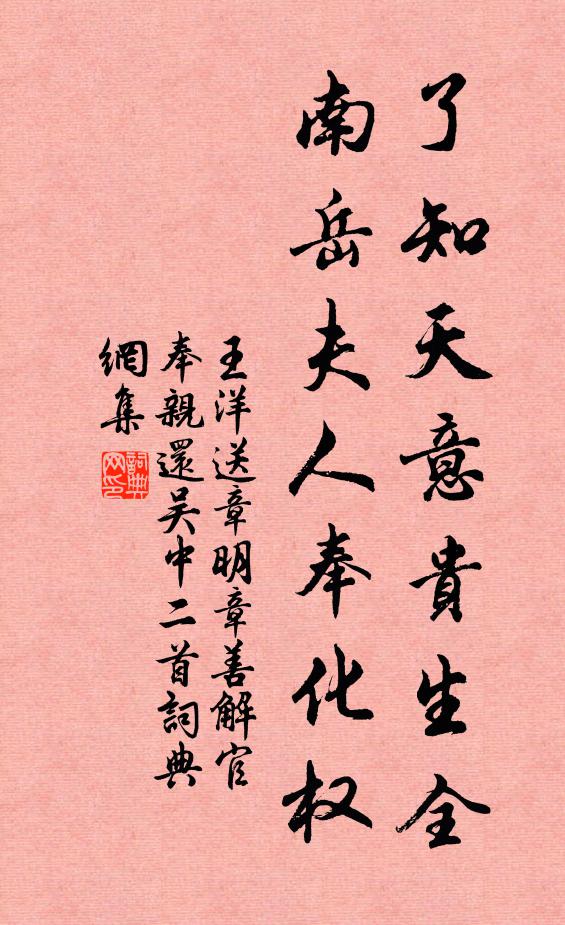 了知天意貴生全
南岳夫人奉化权
王洋送章明章善解官
奉親還吴中二首詞典
網集
詞典网印